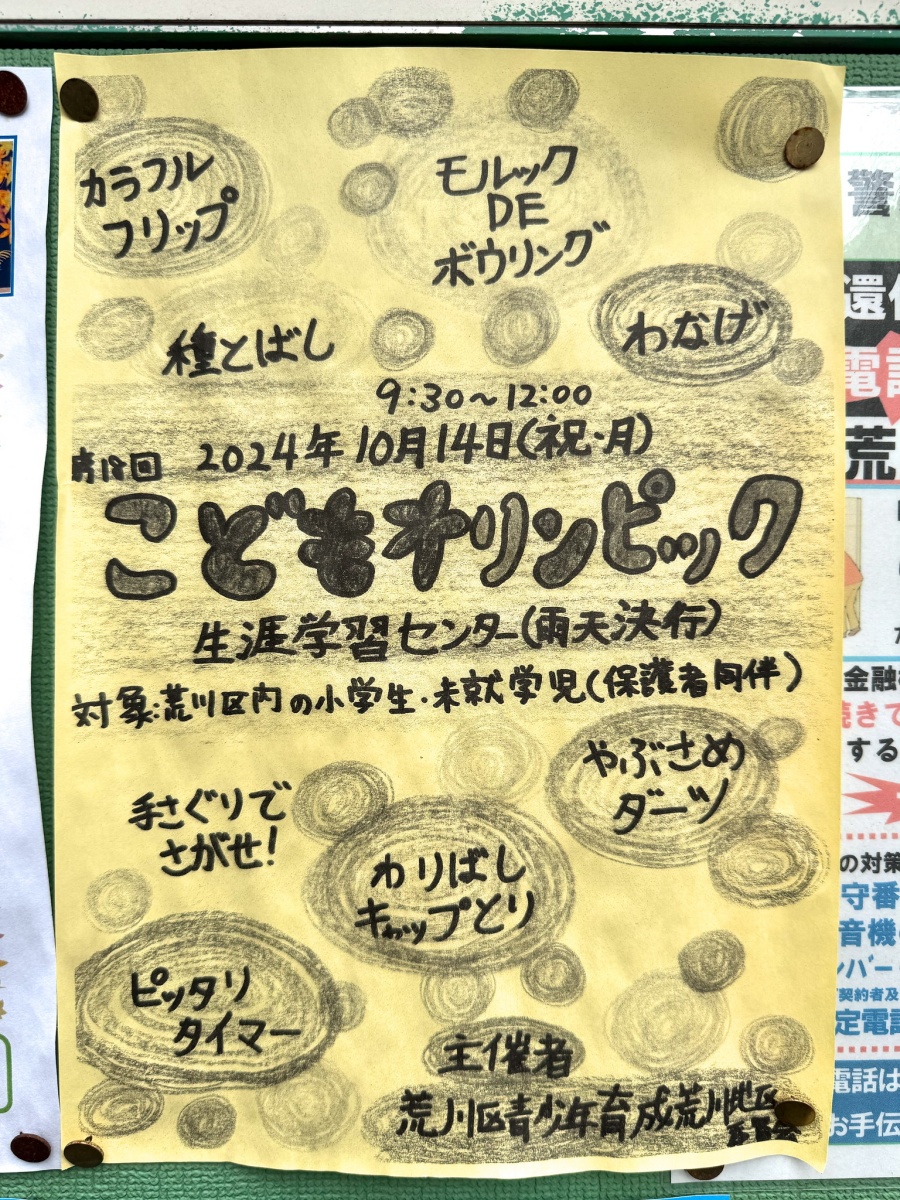 カラフル
フリップ
モルック
DE
ボウリング
種とばし
わなげ
9:30〜12:00
2024年10月14日(祝・月)
第18回
こどもオリンピック
生涯学習センター(雨天決行)
対象:荒川区内の小学生・未就学児(保護者同伴)
手さぐりで
さがせ!
やぶさめ
ダーツ
わりばし
キャップとり
ピッタリ
タイマー
主催者
荒川区青少年育成荒川地区
委員会
警
還付
電話
荒
金融
続きで
する
の対策
守番
音機
ンバー
契約者及
定電話
電話は
お手伝